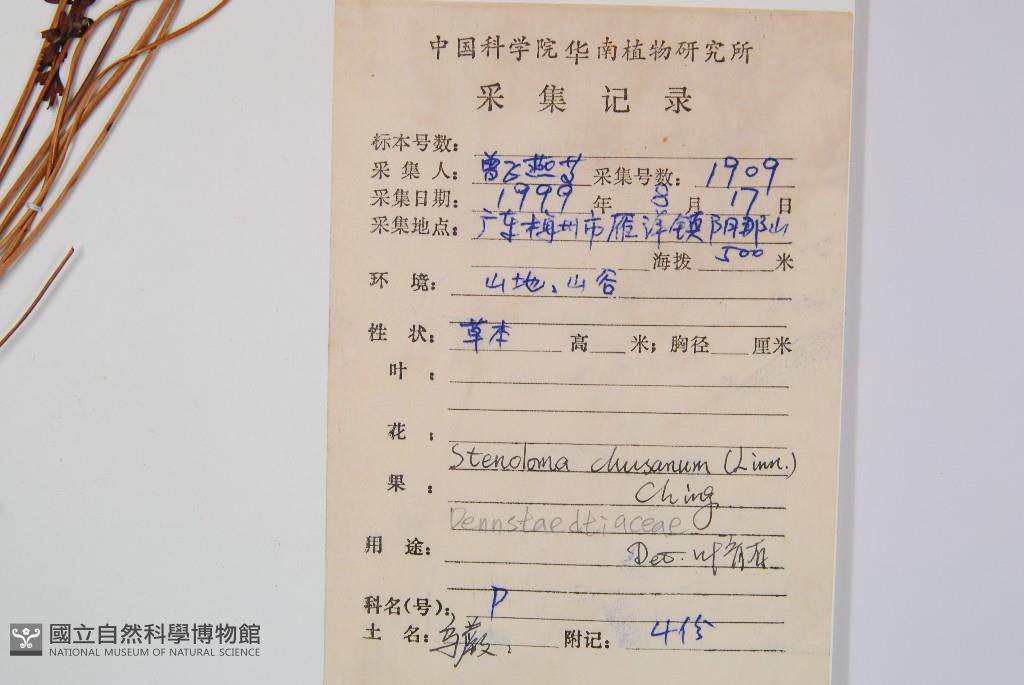 中国科学院华南植物研究所
采集记录
标本号数:
采集人: 曾飞燕等 采集号数: 1909
采集日期: 1999 年 8 月 17 日
采集地点: 广东梅州市雁洋镇阴那山
海拨 500 米
环境: 山地、山谷
性状: 草本 高 米; 胸径 厘米
叶:
花:
Stenoloma chusanum (Linn.)
果:
Ching
Dennstaedtiaceae
用途:
Det. 叶育石
科名(号): P
土名: 乌蕨. 附记: 4份
國立自然科學博物館
NATIONAL MUSEUM OF NATURAL SCIENCE